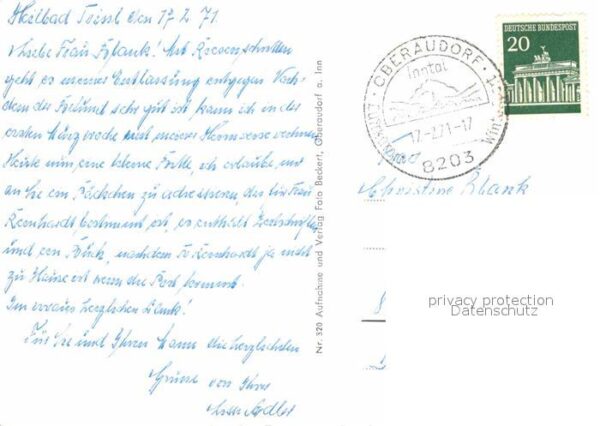 Heilbad Trissl den 17.2.71
Liebe Frau Blank! Mit Riesenschritten
geht es meiner Entlassung entgegen. Nach-
dem der Befund sehr gut ist kann ich in der
ersten Märzwoche mit meiner Heimreise rechnen
Heute nun eine kleine Bitte, ich erlaube mir
an Sie ein Päckchen zu adressieren das für Frau
Reinhardt bestimmt ist, es enthält Zeitschriften
und ein Buch, nachdem Fr. Reinhardt ja nicht
zu Hause ist wenn die Post kommt.
Im voraus herzlichen Dank!
Für Sie und Ihren Mann die herzlichsten
Grüsse von Ihrer
Nr. 320 Aufnahme und Verlag Foto Beckert, Oberaudorf a. Inn
OBERAUDORF
Inntal
17.-2.71-17
8203
DEUTSCHE BUNDESPOST
20
Christine Blank
privacy protection
Datenschutz